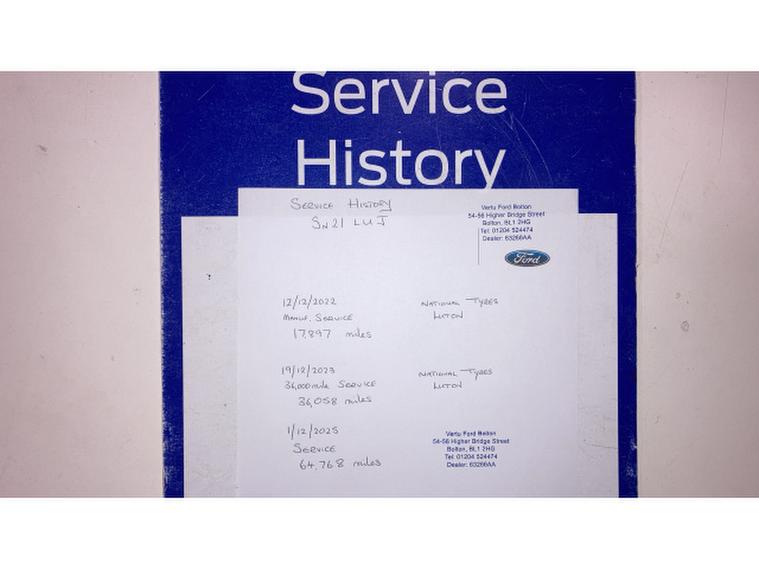 Service
History
SERVICE HISTORY
SN21 LUJ
Vertu Ford Bolton
54-56 Higher Bridge Street
Bolton, BL1 2HG
Tel: 01204 524474
Dealer: 63266AA
Ford
12/12/2022
MANUF. SERVICE
17,897 miles
NATIONAL TYRES
LUTON
19/12/2023
36,000 mile SERVICE
36,058 miles
NATIONAL TYRES
LUTON
1/12/2025
SERVICE
64,768 miles
Vertu Ford Bolton
54-56 Higher Bridge Street
Bolton, BL1 2HG
Tel: 01204 524474
Dealer: 63266AA